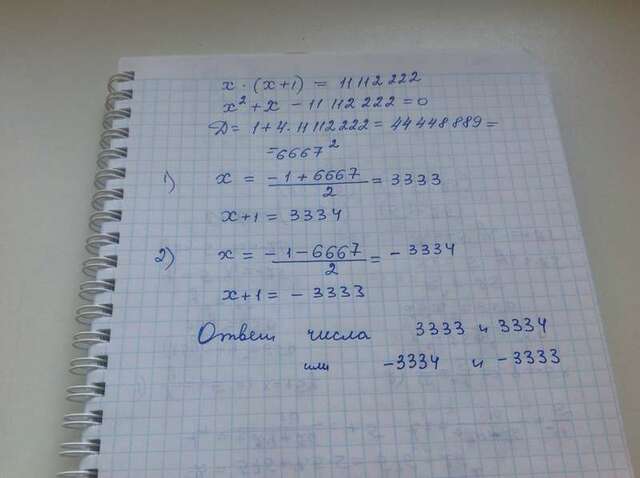 x · (x+1) = 11112222
x² + x - 11112222 = 0
D = 1+4·11112222 = 44448889 =
= 6667²
1) x = (-1+6667)/2 = 3333
x+1 = 3334
2) x = (-1-6667)/2 = -3334
x+1 = -3333
Ответ числа 3333 и 3334
или -3334 и -3333